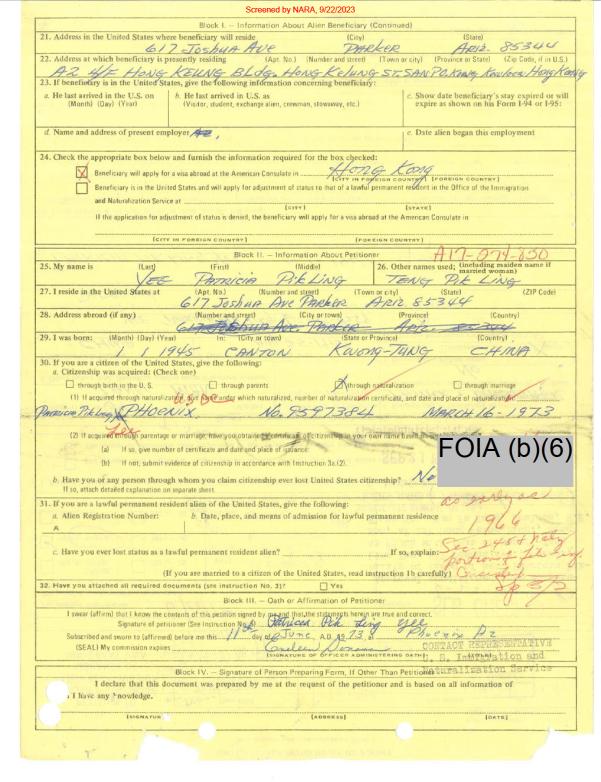 Screened by NARA, 9/22/2023
Block I. – Information About Alien Beneficiary (Continued)
21. Address in the United States where beneficiary will reside (City) (State)
617 Joshua Ave PARKER ARIZ. 85344
22. Address at which beneficiary is presently residing (Apt. No.) (Number and street) (Town or city) (Province or State) (Zip Code, if in U.S.)
A2 4/F HONG KEUNG BLDG. HONG KEUNG ST. SAN PO. Kong Kowloon Hong Kong
23. If beneficiary is in the United States, give the following information concerning beneficiary:
a. He last arrived in the U.S. on (Month) (Day) (Year)
b. He last arrived in U.S. as (Visitor, student, exchange alien, crewman, stowaway, etc.)
c. Show date beneficiary's stay expired or will expire as shown on his Form I-94 or I-95:
d. Name and address of present employer
e. Date alien began this employment
24. Check the appropriate box below and furnish the information required for the box checked:
Beneficiary will apply for a visa abroad at the American Consulate in HONG KONG
(CITY IN FOREIGN COUNTRY) (FOREIGN COUNTRY)
Beneficiary is in the United States and will apply for adjustment of status to that of a lawful permanent resident in the Office of the Immigration
and Naturalization Service at
(CITY) (STATE)
If the application for adjustment of status is denied, the beneficiary will apply for a visa abroad at the American Consulate in
(CITY IN FOREIGN COUNTRY) (FOREIGN COUNTRY)
Block II. – Information About Petitioner A17-074-850
25. My name is (Last) (First) (Middle) 26. Other names used: (including maiden name if married woman)
YEE PATRICIA PIK LING TENG PIK LING
27. I reside in the United States at (Apt. No.) (Number and street) (Town or city) (State) (ZIP Code)
617 Joshua Ave PARKER ARIZ 85344
28. Address abroad (if any) (Number and street) (City or town) (Province) (Country)
617 Joshua Ave. Parker Ariz. 85344
29. I was born: (Month) (Day) (Year) In: (City or town) (State or Province) (Country)
1 1 1945 CANTON KWONG-TUNG CHINA
30. If you are a citizen of the United States, give the following:
a. Citizenship was acquired: (Check one)
through birth in the U. S. through parents through naturalization through marriage
(1) If acquired through naturalization, give name under which naturalized, number of naturalization certificate, and date and place of naturalization:
Patricia Pik Ling PHOENIX No. 9597384 MARCH 16-1973
Yee
(2) If acquired through parentage or marriage, have you obtained a certificate of citizenship in your own name based on
(a) If so, give number of certificate and date and place of issuance
(b) If not, submit evidence of citizenship in accordance with Instruction 3a.(2).
FOIA (b)(6)
b. Have you or any person through whom you claim citizenship ever lost United States citizenship? No
If so, attach detailed explanation on separate sheet.
31. If you are a lawful permanent resident alien of the United States, give the following:
as early as
1966
a. Alien Registration Number: b. Date, place, and means of admission for lawful permanent residence
A
c. Have you ever lost status as a lawful permanent resident alien? If so, explain:
(If you are married to a citizen of the United States, read instruction 1b carefully)
32. Have you attached all required documents (see instruction No. 3)? Yes
Block III. – Oath or Affirmation of Petitioner
I swear (affirm) that I know the contents of this petition signed by me and that the statements herein are true and correct.
Signature of petitioner (See Instruction No. Patricia Pik Ling Yee
Subscribed and sworn to (affirmed) before me this 11th day of June, A.D. 1973, at Phoenix Az
(SEAL) My commission expires
(SIGNATURE OF OFFICER ADMINISTERING OATH)
CONTACT REPRESENTATIVE
U. S. Immigration and
Naturalization Service
Block IV. – Signature of Person Preparing Form, If Other Than Petitioner
I declare that this document was prepared by me at the request of the petitioner and is based on all information of
I have any knowledge.
(SIGNATUR (ADDRESS) (DATE)